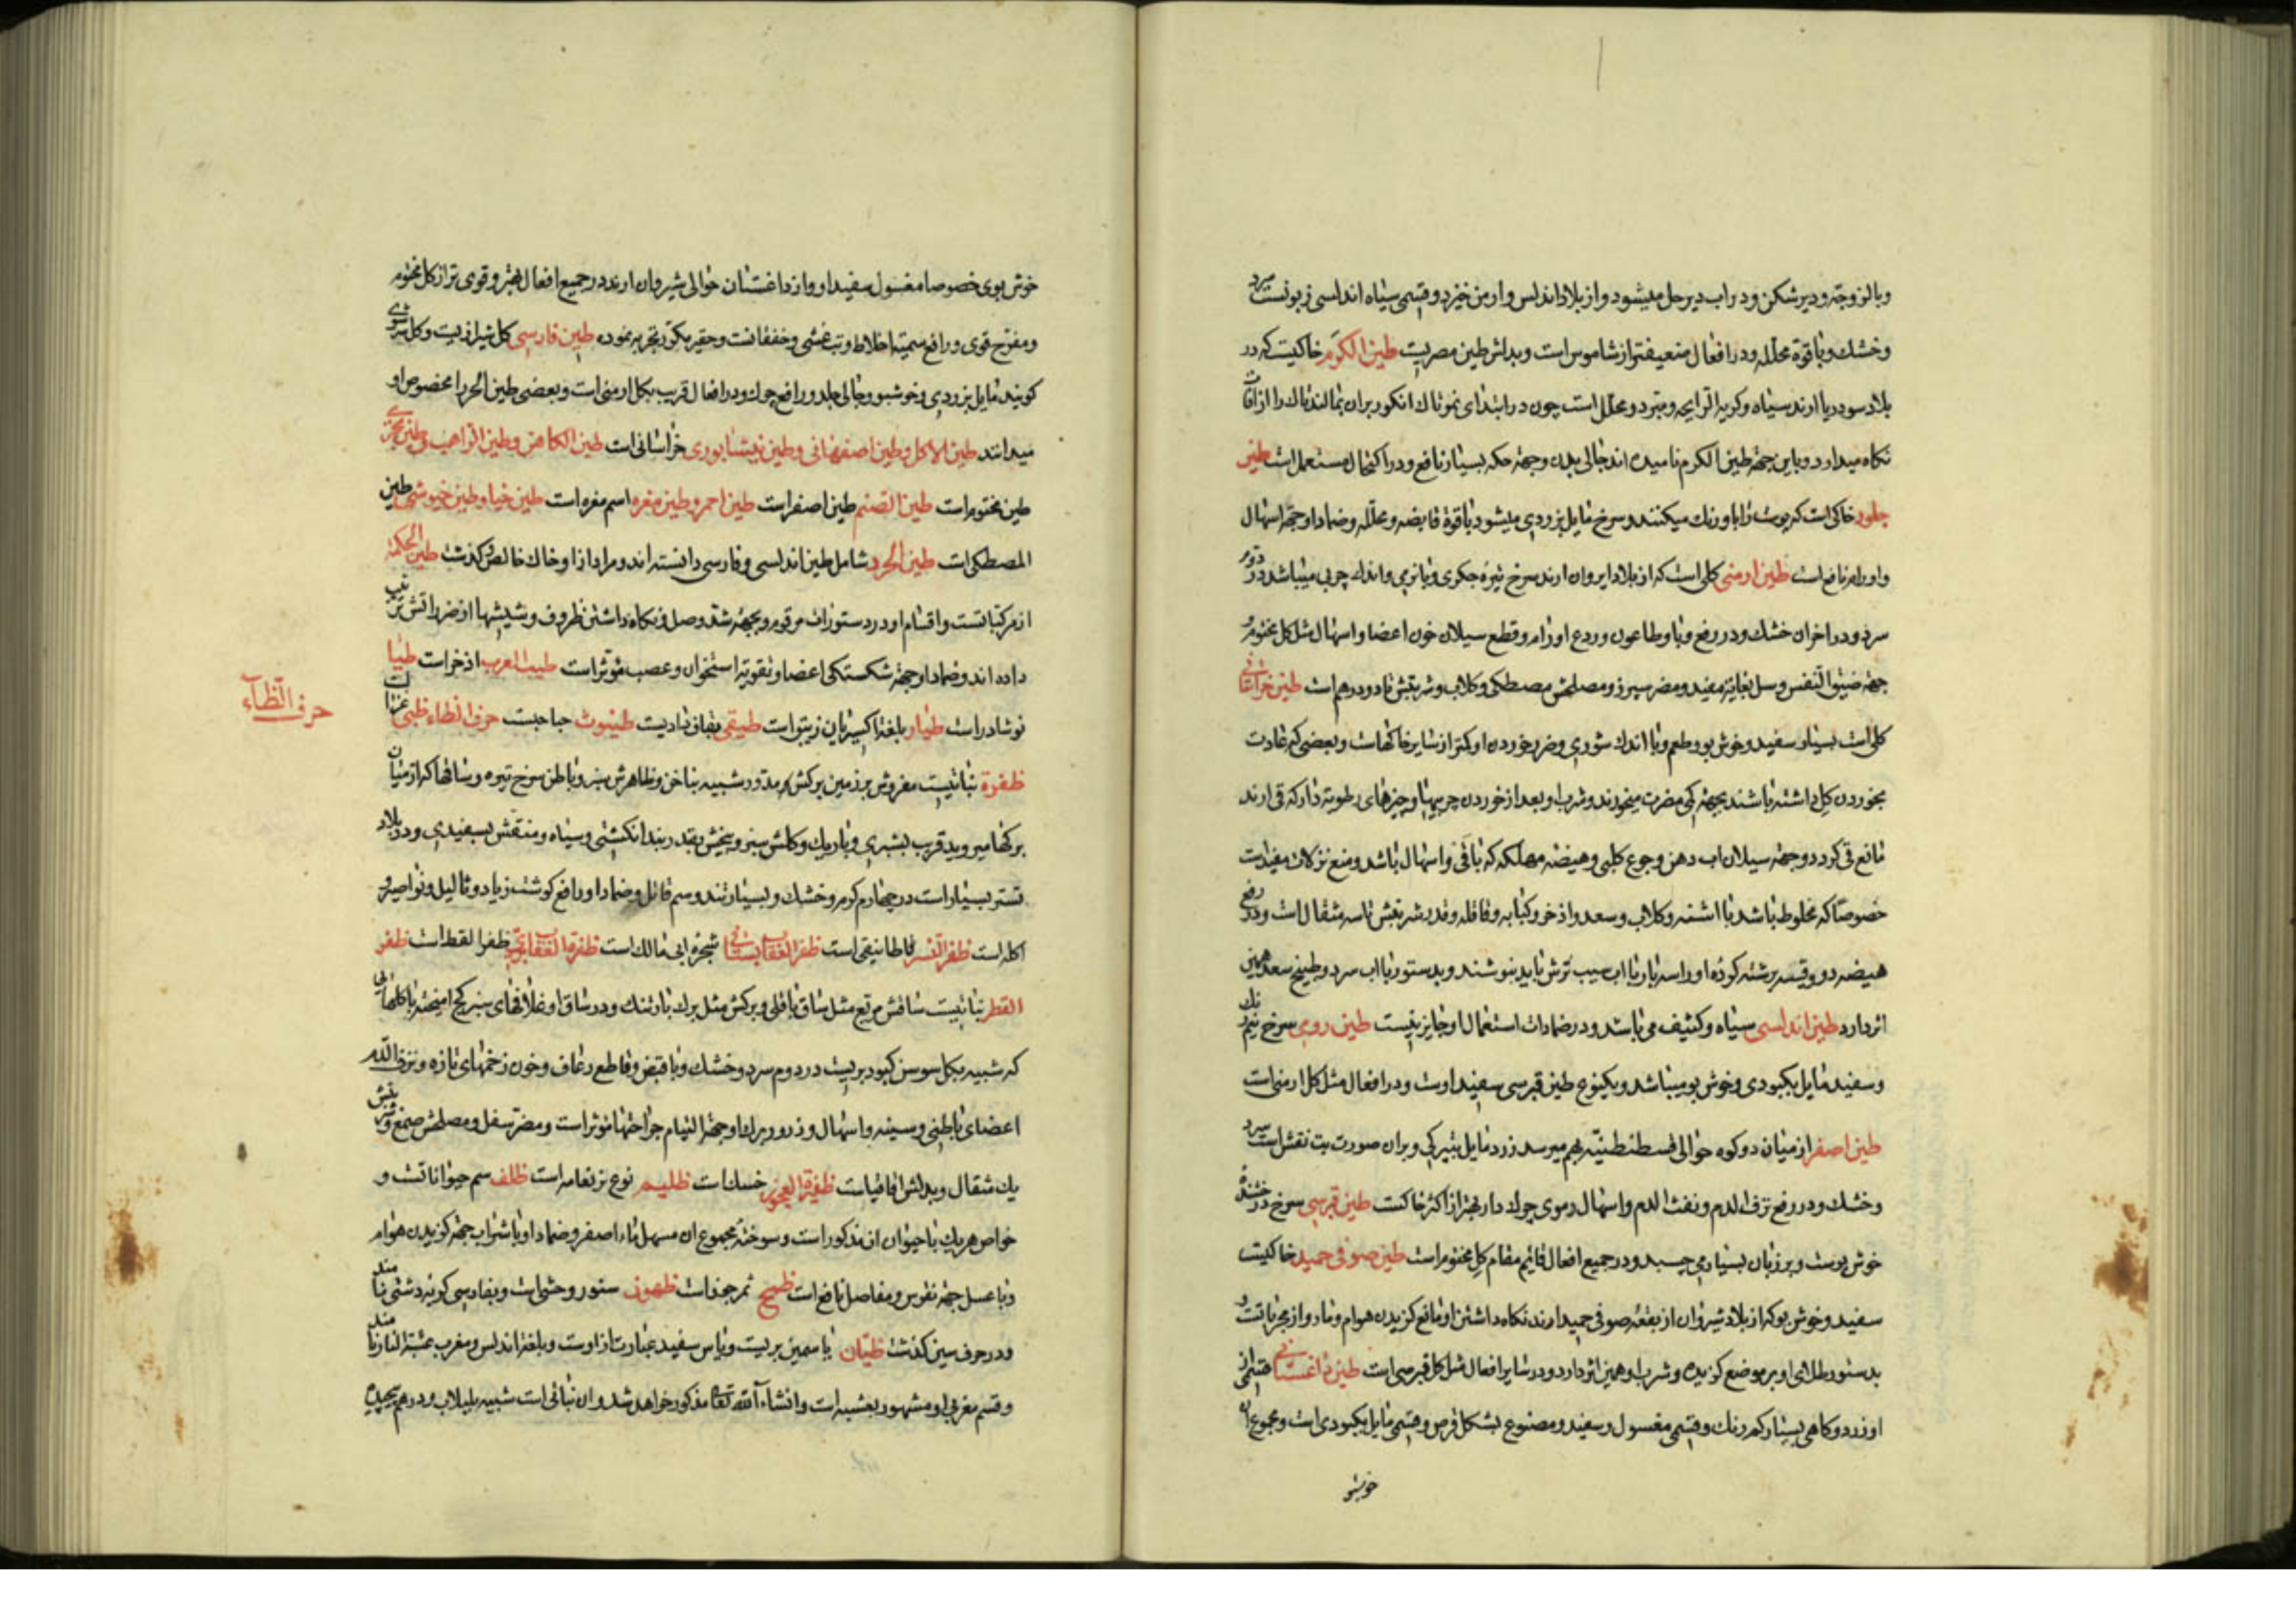 وبالزوجة ودیر شکن ودراب دیر حل میشود واز بلاد اندلس وارمن خیزد وقسمی سیاه اندلسی زبونست سرد
وخشك وباقوة محلله ودر افعال ضعیفتر از شاموس است وبدلش طین مصریت طین الکرم خاکیت که در
بلاد سوریا ارند سیاه وکریه الرایحه ومبرد ومحلل است چون در ابتدای نمو تاك انکور بران بمالند تاك را از افات
نکاه میدارد وباین جهة طین الکرم نامیده اند جالی بدن وجهة حکه بسیار نافع ودر اکتحال مستعمل است طین
جلود خاکی است که پوست را باو رنك میکنند وسرخ مایل بزردی میشود باقوة قابضه ومحلله وضماد او جهة اسهال
واورام نافع است طین ارمنی کلی است که از بلاد ایروان ارند سرخ تیره جکری وبا نرمی واندك چربی میباشد در دوم
سرد ودر اخران خشك ودر رفع وبا وطاعون وردع اورام وقطع سیلان خون اعضا واسهال مثل کل مختوم و
جهة ضیق النفس وسل بغایة مفید ومضر سپرز ومصلحش مصطکی وکلاب وشربتش تا دو درهم است طین خراسانی
کلی است بسیار سفید وخوش بو وطعم وبا اندك شوری وضرر خوردن او کمتر از سایر خاکهاست وبعضی که عادت
بخوردن کل داشته باشند بجهة کمی مضرت میخورند وشرب او بعد از خوردن چربیها وچیزهای رطوبة دار که قی ارند
مانع قی کردد وجهة سیلان اب دهن وجوع کلبی وهیضه مهلکه که باقی واسهال باشد ومنع نزلات مفید است
خصوصا که مخلوط باشد با اشنه وکلاب وسعد واذخر وکبابه وقاقله وقدر شربتش تا سه مثقال است ودر رفع
هیضه دو وقیه برشته کرده او را سه بار با اب سیب ترش باید بنوشند وبدستور با اب سرد وطبیخ سعد همین
اثر دارد طین اندلسی سیاه وکثیف می باشد ودر ضمادات استعمال او جایز نیست طین رومی سرخ نیم رنك
وسفید مایل بکبودی وخوش بو میباشد ویکنوع طین قبرسی سفید اوست ودر افعال مثل کل ارمنی است
طین اصفر از میان دو کوه حوالی قسطنطنیه بهم میرسد زرد مایل بتیرکی وبران صورت بت نقش است سرد
وخشك ودر رفع نزف الدم ونفث الدم واسهال دموی چرك دار بهتر از اکثر خاکست طین قبرسی سرخ درخشنده
خوش بوست وبر زبان بسیار می چسبد ودر جمیع افعال قایم مقام کل مختوم است طین صوفی حمید خاکیت
سفید وخوش بو که از بلاد شیروان از بقعه صوفی حمید ارند نکاه داشتن او مانع کزیدن هوام ومار واز مجرباتست و
بدستور طلای او بر موضع کزیده وشرب او همین اثر دارد ودر سایر افعال مثل کل قبرسی است طین داغستانی قسمی از
او زرد وکاهی بسیار کم رنك وقسمی مغسول وسفید ومصنوع بشکل قرص وقسمی مایل بکبودی است ومجموع ان
خوشبو
خوش بوی خصوصا مغسول سفید او واز داغستان حوالی شیروان ارند در جمیع افعال بهتر وقوی تر از کل مختوم
ومفرح قوی ورافع سمیة اخلاط وتب غشی وخفقانست وحقیر مکرر تجربه نموده طین فارسی کل شیرازیت وکل سرشوی
کویند مایل بزردی وخوشبو وجالی جلد ورافع چرك ودر افعال قریب بکل ارمنی است وبعضی طین الحر را مخصوص او
میدانند طین الاکل وطین اصفهانی وطین نیشابوری خراسانی است طین الکاهن وطین الراهب وطین بحیری
طین مختوم است طین الصنم طین اصفر است طین احمر وطین مغره اسم مغره است طین خیا وطین خیوشی طین
المصطکی است طین الحر شامل طین اندلسی وفارسی دانسته اند ومراد ازو خاك خالص وکذشت طین الحکمة
از مرکباتست واقسام او در دستورات مرقوم وبجهة شد وصل ونکاه داشتن ظروف وشیشها از ضرر اتش ترتیب
داده اند وضماد او جهة شکستکی اعضا وتقویة استخوان وعصب مؤثر است طیب العرب اذخر است طیا
نوشادر است طیار بلغة اکسیریان زیبق است طیقی بقاق نادیت طینوث حباحبست حرف الظاء ظبی غزالست
حرف الظاء
ظفرة نباتیست مفروش بر زمین برکش مدور شبیه بناخن وظاهرش سبز وباطن سرخ تیره وساقها که از میان
برکها میروید قریب بشبری وباریك وکلش سبز وبیخش بقدر بند انکشتی وسیاه ومنقش بسفیدی ودر بلاد
تستر بسیار است در چهارم کرم وخشك وبسیار تند وسم قاتل وضماد او رافع کوشت زیاد وثالیل ونواصیر و
اکله است ظفر النسر قاطانیقی است ظفر العقاب بستانی شجرة ابی مالك است ظفرة العقاب بری ظفر القط است ظفر
القطر نباتیست ساقش مربع مثل ساق باقلی وبرکش مثل برك بارتنك ودر ساق او غلافهای سبز کج امیخته با کلهایی
که شبیه بکل سوسن کبود بریست در دوم سرد وخشك وبا قبض وقاطع رعاف وخون زخمهای تازه ونزف الدم
اعضای باطنی وسینه واسهال وذرور برك او جهة التیام جراحتها مؤثر است ومضر سفل ومصلحش صمغ وشربتش
یك مثقال وبدلش اقاقیاست ظفیرة العجوز خسك است ظلیم نوع نر نعامه است ظلف سم حیواناتست و
خواص هر یك با حیوان ان مذکور است وسوخته مجموع ان مسهل ماء اصفر وضماد او با شراب جهة کزیدن هوام
وبا عسل جهة نقرس ومفاصل نافع است ظمخ ثمر جفت است ظهون ستور وحشی است وبفارسی کربه دشتی نامند
ودر حرف سین کذشت ظیان یاسمین بریست ویاس سفید عبارت از اوست وبلغة اندلس ومغرب عشبة النار نامند
وقسم مغربی او مشهور بعشبه است وانشاء الله تعالی مذکور خواهد شد وان نباتی است شبیه بلبلاب ودرهم پیچیده